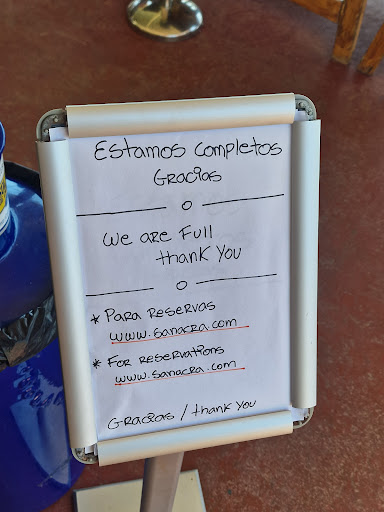 Estamos completos
Gracias
We are Full
thank You
* Para Reservas
www.sanacra.com
* For Reservations
www.sanacra.com
Gracias / thank You